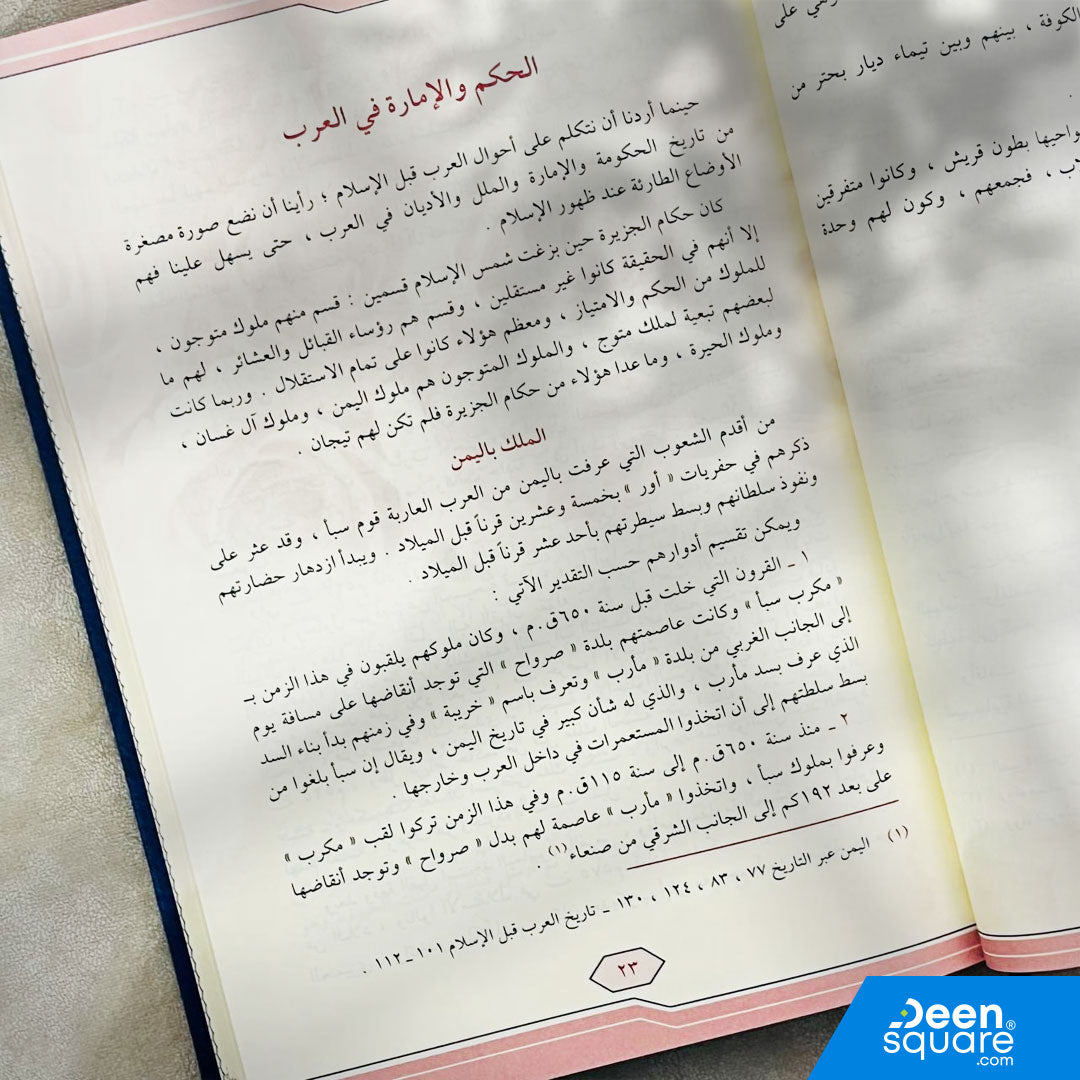 الحكم والإمارة في العرب
حينما أردنا أن نتكلم على أحوال العرب قبل الإسلام ؛ رأينا أن نضع صورة مصغرة
من تاريخ الحكومة والإمارة والملل والأديان في العرب ، حتى يسهل علينا فهم
الأوضاع الطارئة عند ظهور الإسلام .
كان حكام الجزيرة حين بزغت شمس الإسلام قسمين : قسم منهم ملوك متوجون ،
إلا أنهم في الحقيقة كانوا غير مستقلين ، وقسم هم رؤساء القبائل والعشائر ، لهم ما
للملوك من الحكم والامتياز ، ومعظم هؤلاء كانوا على تمام الاستقلال . وربما كانت
لبعضهم تبعية لملك متوج ، والملوك المتوجون هم ملوك اليمن ، وملوك آل غسان ،
وملوك الحيرة ، وما عدا هؤلاء من حكام الجزيرة فلم تكن لهم تيجان .
الملك باليمن
من أقدم الشعوب التي عرفت باليمن من العرب العاربة قوم سبأ ، وقد عثر على
ذكرهم في حفريات « أور » بخمسة وعشرين قرناً قبل الميلاد . ويبدأ ازدهار حضارتهم
ونفوذ سلطانهم وبسط سيطرتهم بأحد عشر قرناً قبل الميلاد .
ويمكن تقسيم أدوارهم حسب التقدير الآتي :
١ ـ القرون التي خلت قبل سنة ٦٥٠ق.م ، وكان ملوكهم يلقبون في هذا الزمن بـ
« مكرب سبأ » وكانت عاصمتهم بلدة « صرواح » التي توجد أنقاضها على مسافة يوم
إلى الجانب الغربي من بلدة « مأرب » وتعرف باسم « خريبة » وفي زمنهم بدأ بناء السد
الذي عرف بسد مأرب ، والذي له شأن كبير في تاريخ اليمن ، ويقال إن سبأ بلغوا من
بسط سلطتهم إلى أن اتخذوا المستعمرات في داخل العرب وخارجها .
٢ ـ منذ سنة ٦٥٠ق.م إلى سنة ١١٥ق.م وفي هذا الزمن تركوا لقب « مكرب »
وعرفوا بملوك سبأ ، واتخذوا « مأرب » عاصمة لهم بدل « صرواح » وتوجد أنقاضها
على بعد ١٩٢كم إلى الجانب الشرقي من صنعاء(١) .
(١) اليمن عبر التاريخ ٧٧ ، ٨٣ ، ١٢٤ ، ١٣٠ ـ تاريخ العرب قبل الإسلام ١٠١ـ١١٢ .
٢٣
على
الكوفة ، بينهم وبين تيماء ديار بحتر من
بطون قريش ، وكانوا متفرقين
، فجمعهم ، وكون لهم وحدة
Deen
square®
.com